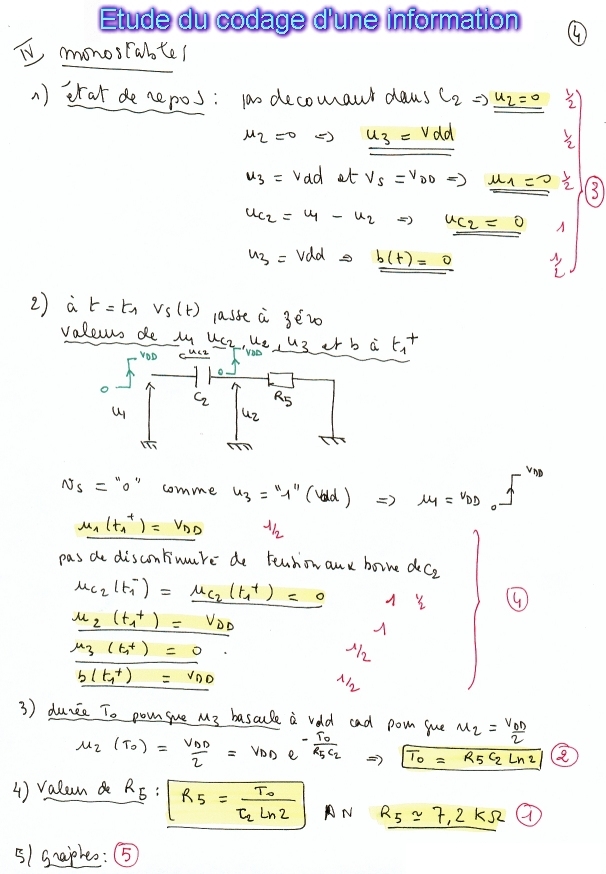 Etude du codage d'une information
4
IV monostables
1) état de repos : pas de courant dans C2 => u2=0 1/2
u2=0 => u3 = Vdd 1/2
u3 = Vdd et Vs = VDD => u1 = 0 1/2
uc2 = u1 - u2 => uc2 = 0 1
3
u3 = Vdd => b(t) = 0 1/2
2) à t = t1 Vs(t) passe à zéro
valeurs de u1 uc2, u2, u3 et b à t1+
VDD uc2 VDD
0 0
u1 C2 u2 R5
Vs = "0" comme u3 = "1" (Vdd) => u1 = VDD 0 VDD
u1(t1+) = VDD 1/2
pas de discontinuité de tension aux borne de C2
uc2(t1-) = uc2(t1+) = 0 1 1/2
4
u2(t1+) = VDD 1
u3(t1+) = 0 . 1/2
b(t1+) = VDD 1/2
3) durée To pour que u3 bascule à Vdd cad pour que u2 = VDD/2
u2(To) = VDD/2 = VDD e^-To/R5C2 => To = R5 C2 Ln2 2
4) Valeur de R5 : R5 = To/C2 Ln2 AN R5 ≃ 7,2 KΩ 1
5) graphes : 5